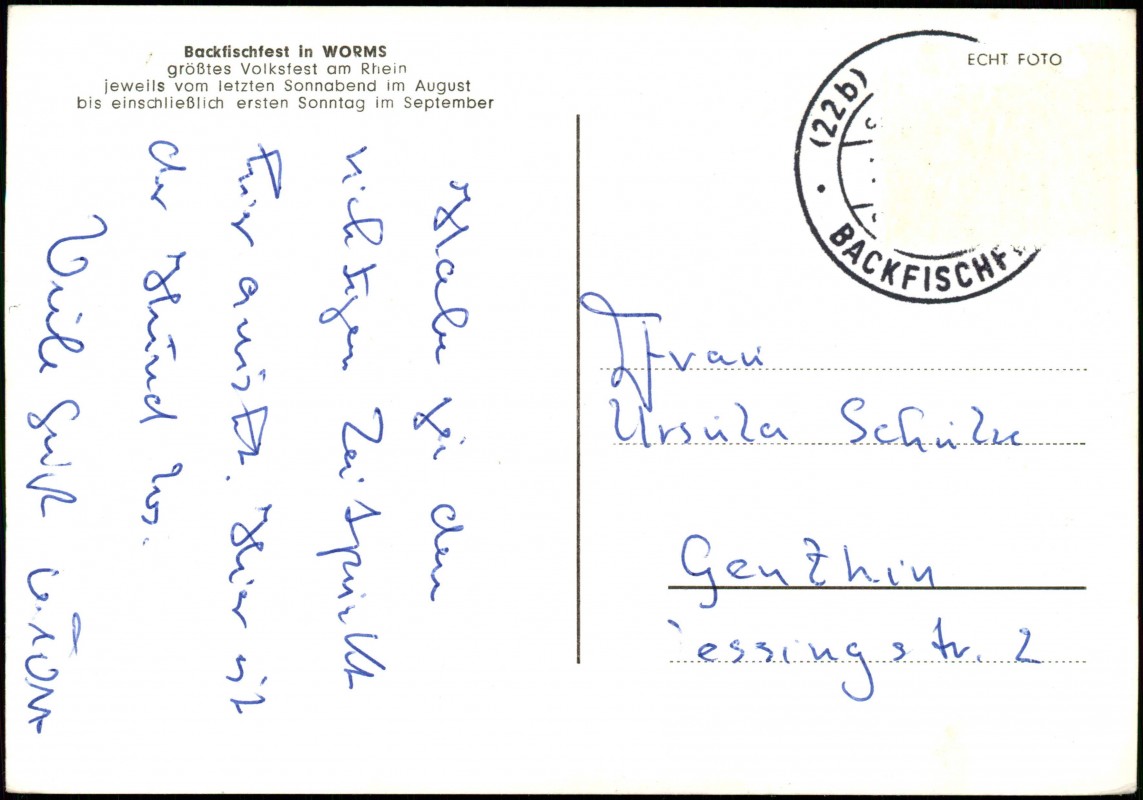 Backfischfest in WORMS
größtes Volksfest am Rhein
jeweils vom letzten Sonnabend im August
bis einschließlich ersten Sonntag im September
ECHT FOTO
(22b)
BACKFISCHF
Habe zu dem
richtigen Zeitpunkt
hier Hier ist
der Hund los.
Viele
Frau
Ursula Schulze
Genthin
essingstr. 2